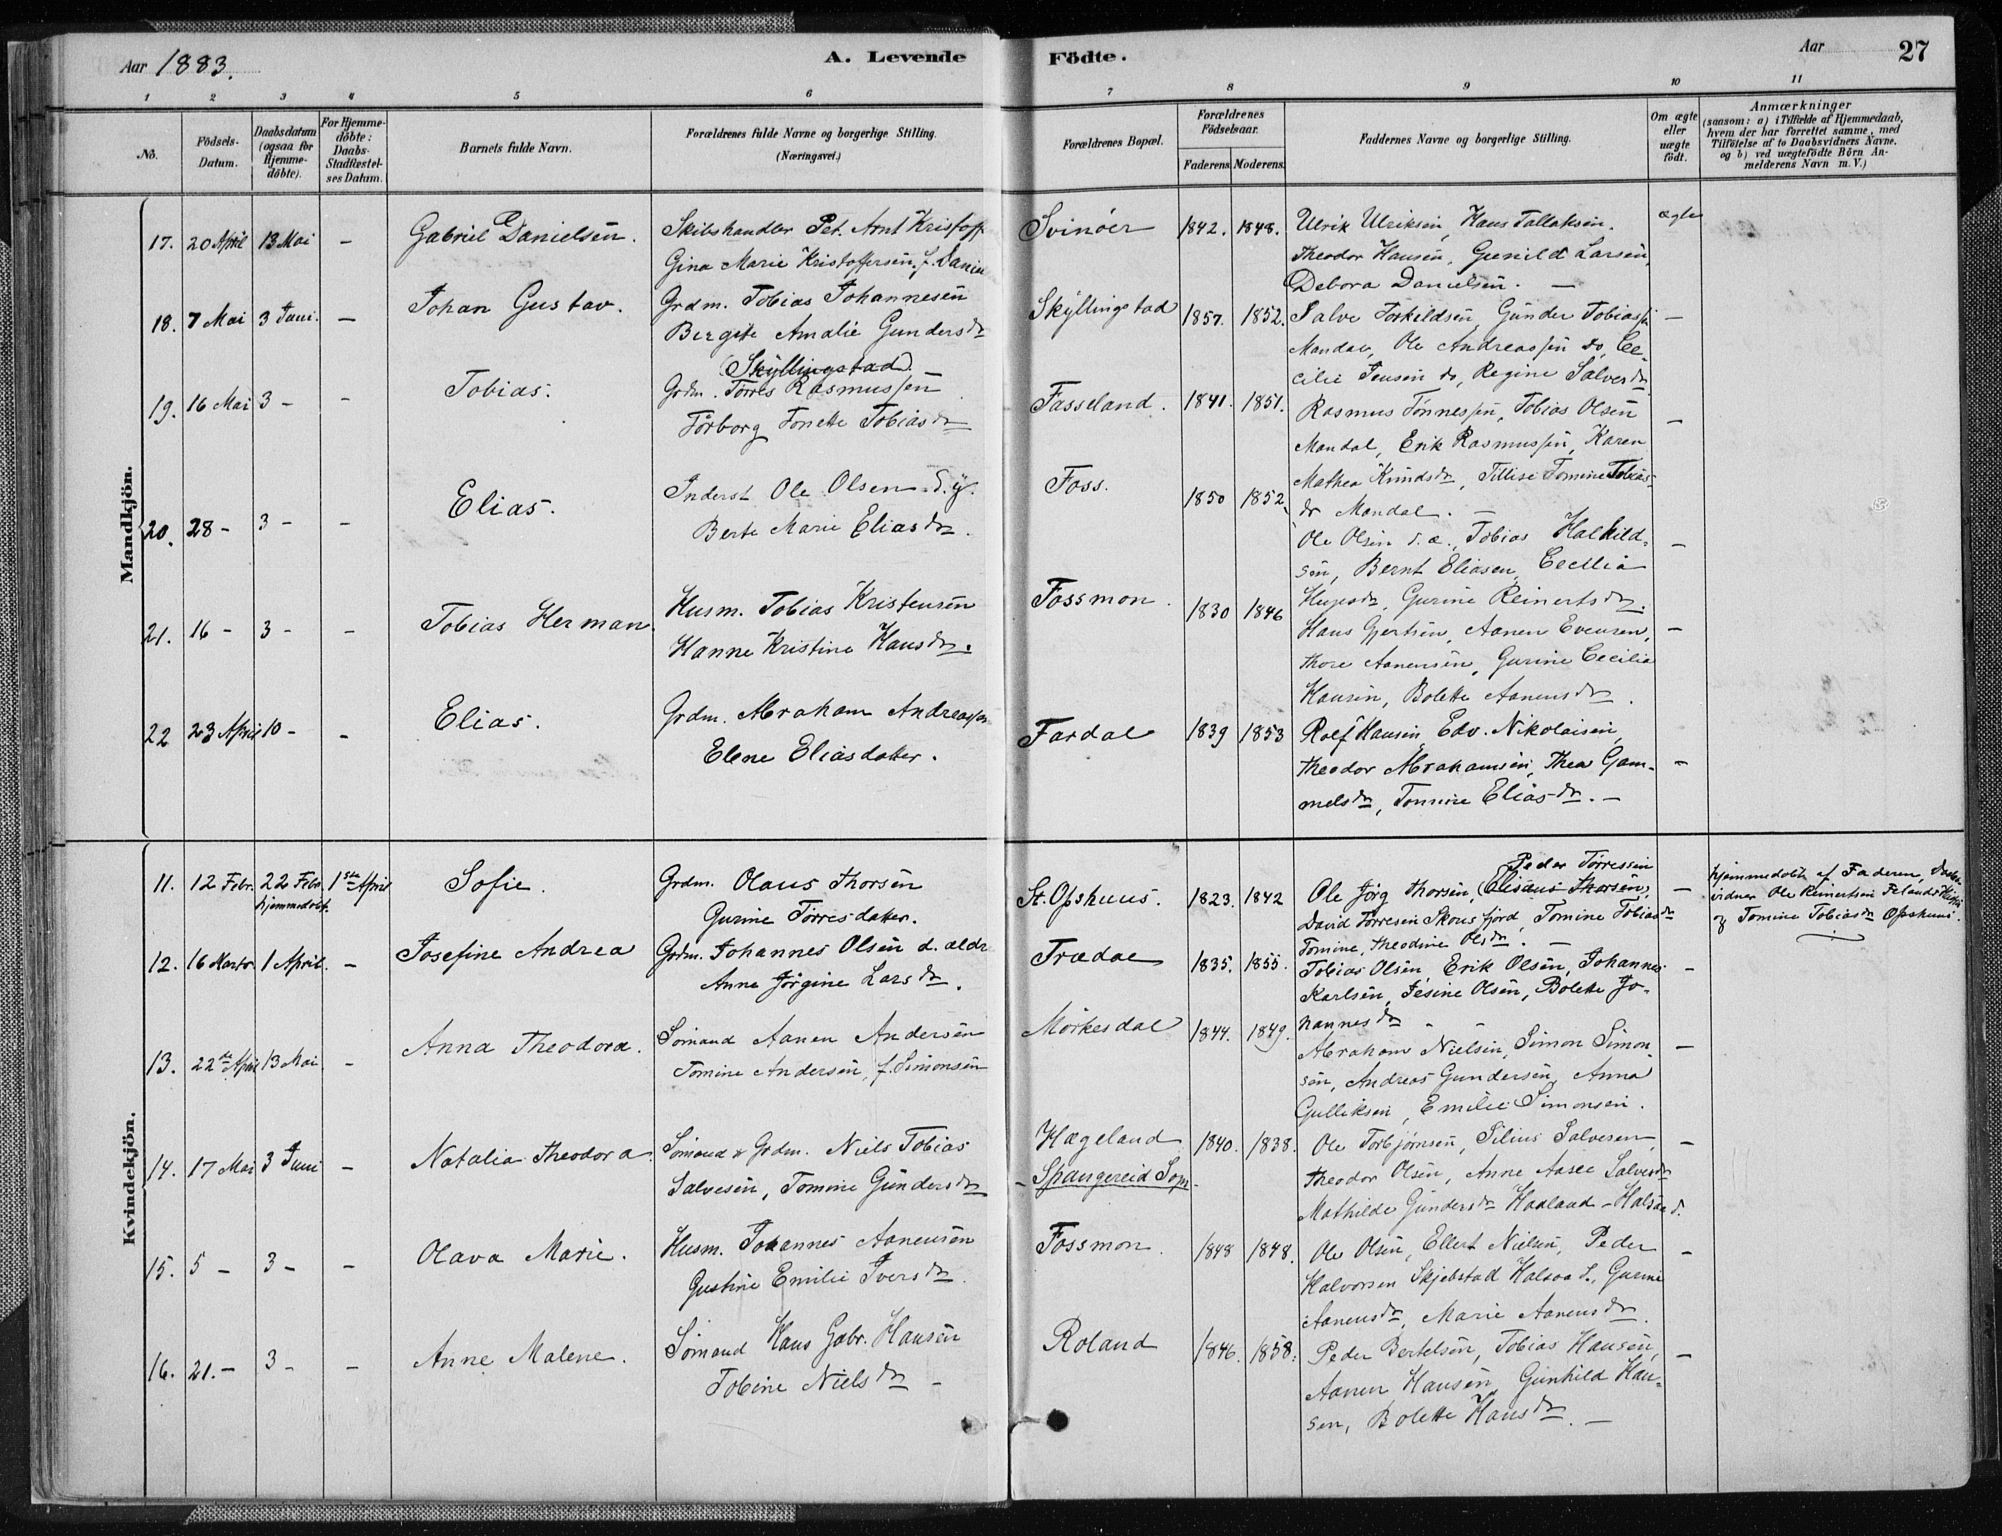 Aar 1883.
A. Levende Födte.
Aar 27
1 2 3 4 5 6 7 8 9 10 11
No.
Födsels-Datum.
Daabsdatum (ogsaa for Hjemme-döbte).
For Hjemme-döbte: Daabs-Stadfæstel-ses Datum.
Barnets fulde Navn.
Forældrenes fulde Navne og borgerlige Stilling.
(Næringsvei.)
Forældrenes Bopæl.
Forældrenes Födselsaar.
Faderens. Moderens.
Faddernes Navne og borgerlige Stilling.
Om ægte eller uægte födt.
Anmærkninger
(saasom: a) i Tilfælde af Hjemmedaab,
hvem der har forrettet samme, med
Tilföielse af to Daabsvidners Navne.
og b) ved uægtefödte Börn An-
melderens Navn m. V.)
Mandkjön.
17. 20 April 13 Mai - Gabriel Danielsen.
Skibshandler Pet. Arnt Kristoff
Gina Marie Kristoffersen, f. Daniel
Svinöer 1842. 1848.
Ulrik Ulriksen, Hans Tallaksen.
Theodor Hansen, Gunild Larsen,
Debora Danielsen. -
ægte
18. 7 Mai 3 Juni. - Johan Gustav.
Grdm. Tobias Johannesen
Bergite Amalie Gundersdr
(Skyllingstad)
Skyllingstad 1857. 1852.
Salve Torkildsen, Gunder Tobiassen
Mandal, Ole Andreassen do, Ce-
cilie Jensen do, Regine Salvesdr
-
19. 16 Mai 3 - - Tobias.
Grdm. Törres Rasmussen
Törborg Tonette Tobiasdr
Fasseland. 1841. 1851.
Rasmus Tönnessen, Tobias Olsen
Mandal, Erik Rasmussen, Karen
Mathea Knudsdr, Tillise Tomine Tobias-
dr Mandal. -
-
20. 28 - 3 - - Elias.
Inderst Ole Olsen d.y.
Berte Marie Eliasdr.
Foss. 1850 1852.
Ole Olsen d.æ., Tobias Halkild-
sen, Bernt Eliasen, Cecilia
Gurine Reinertsdr.
-
21. 16 - 3 - - Tobias Herman.
Husm. Tobias Kristensen
Hanne Kristine Hansdr.
Fossmon. 1830 1846
Hans Gjertsen, Aanen Evensen,
Thore Aanensen, Gurine Cecilia
Hansen, Bolette Aanensdr.
-
22 23 April 10 - - Elias.
Grdm. Abraham Andreassen
Elene Eliasdatter.
Fardal 1839 1853
Rolf Hansen, Edv. Nikolaisen,
Theodor Abrahamsen, Thea Gam-
melsdr, Tomine Eliasdr. -
-
Kvindekjön.
11. 12 Febr. 22 Febr. hjemmedöbt. 1ste April Sofie.
Grdm. Olaus Thorsen
Gurine Törresdatter.
St. Opshuus. 1823. 1842
Peder Törressen
Ole Jörg Thorsen, (Elisæus Thorsen),
David Törresen Skousfjord, Tomine Tobiasdr
Tomine Theodine Olsdr. -
-
hjemmedöbt af Faderen, Daabs-
vidner Ole Reinertsen
og Tomine Tobiasdr Opshuus.
12. 16 Marts. 1 April. - Josefine Andrea
Grdm. Johannes Olsen d. ældr
Anne Jörgine Larsdr.
Trædal 1835. 1855.
Tobias Olsen, Erik Olsen, Johannes
Karlsen, Jesine Olsen, Bolette Jo-
hannesdr - -
-
13. 22de April 13 Mai - Anna Theodora.
Sömand Aanen Andersen
Tomine Andersen, f. Simonsen
Mörkesdal 1844. 1849.
Abraham Nielsen, Simon Simon-
sen, Andreas Gundersen, Anna
Gulliksen, Emilie Simonsen.
-
14. 17 Mai 3 Juni - Natalia Theodora.
Sömand & Grdm. Niels Tobias
Salvesen, Tomine Gundersdr
Hægeland
- Spangereid Sogn -
1840. 1838.
Ole Torbjörnsen, Silius Salvesen,
Theodor Olsen, Anne Aasel Salvesdr
Mathilde Gundersdr Haaland - Halsaa S.
-
15. 5 - 3 - - Olava Marie.
Husm. Johannes Aanensen
Gustine Emilie Iversdr.
Fossmon. 1848 1848.
Ole Olsen, Ellert Nielsen, Peder
Halvorsen Skjebstad Halsaa S., Gurine
Aanensdr, Marie Aanensdr.
-
16. 21. - 3 - - Anne Malene.
Sömand Hans Gabr. Hansen
Tobine Nielsdr -
Roland 1846. 1858.
Peder Bertelsen, Tobias Hansen,
Aanen Hansen, Gunhild Han-
sen, Bolette Hansdr. -
-